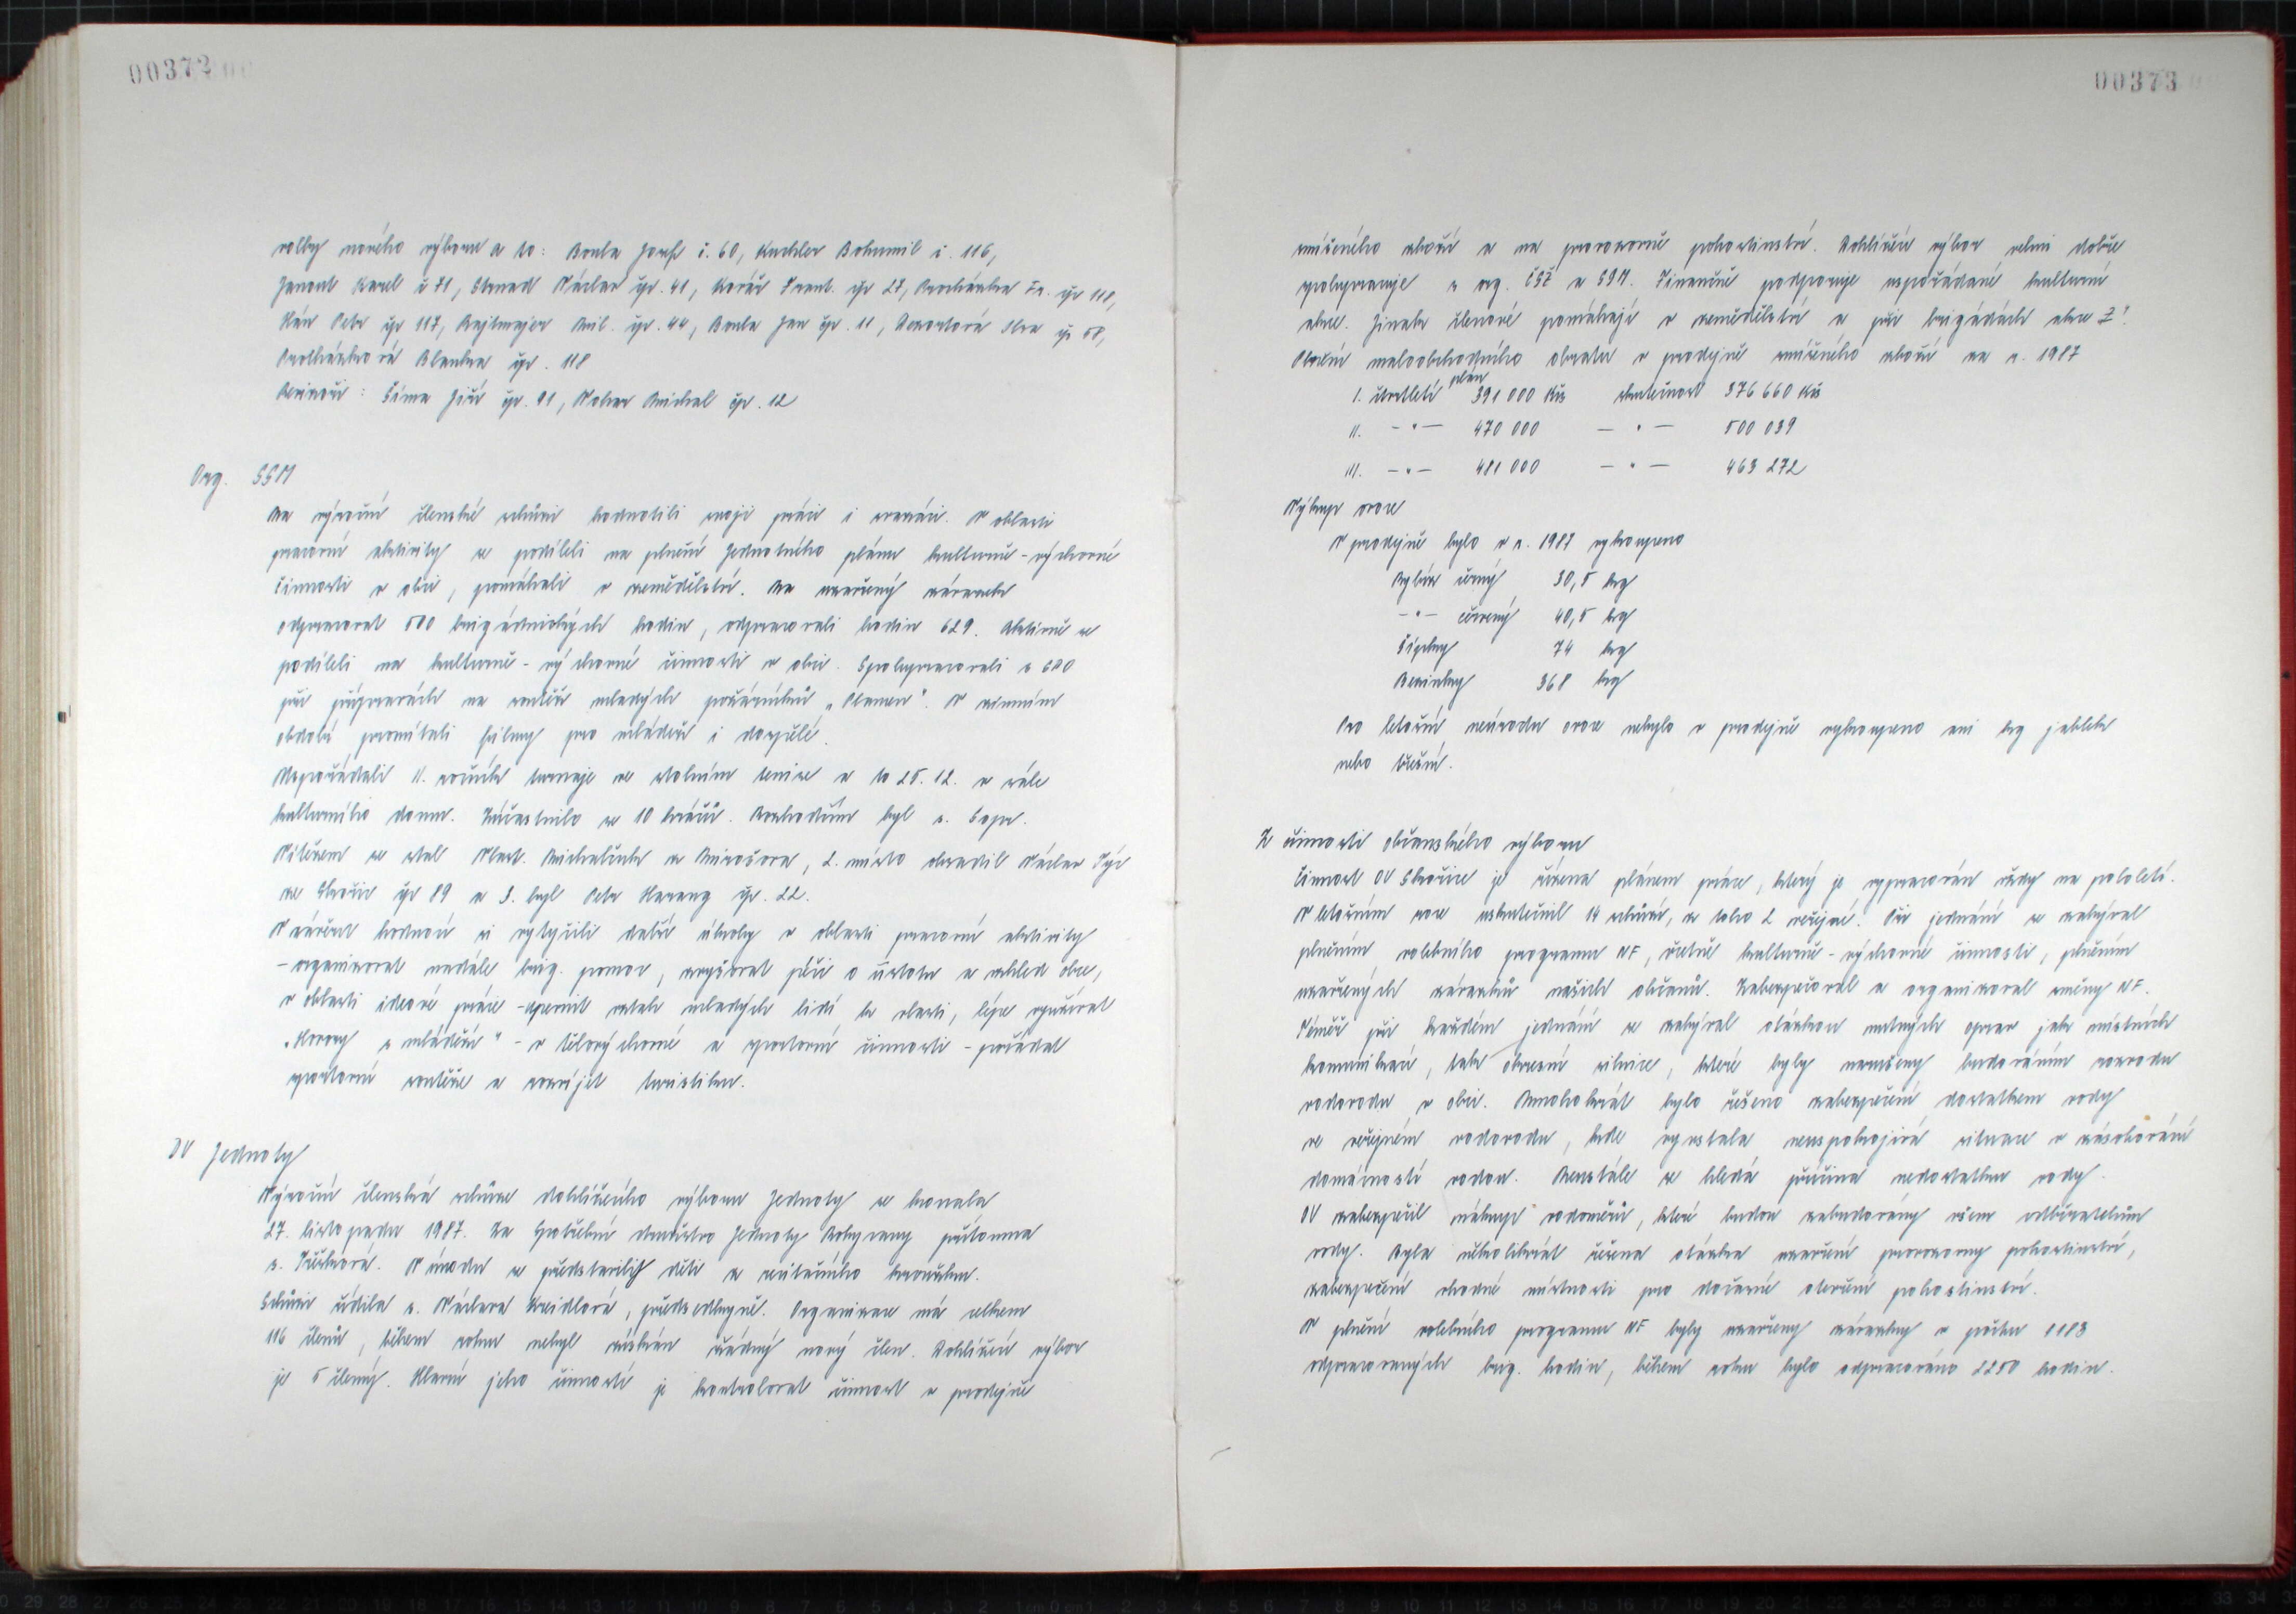 00372
volby nového výboru a to: Boula Josef č. 60, Kuchler Bohumil č. 116,
Janout Karel č 71, Strnad Václav čp. 41, Kovář Frant. čp 27, Procházka Fr. čp 118,
Hán Petr čp 117, Rajtmajer Mil. čp. 44, Boula Jan čp. 11, čp 58,
Procházková Blanka čp. 118
Revisoři: Šíma Jiří čp. 91, Michal čp. 12
Org. SSM
Na výroční členské schůzi hodnotili svoji práci i
V oblasti
pracovní aktivity se podíleli na plnění Jednotného plánu kulturně-výchovné
činnosti v obci, pomáhali v zemědělství. Na uzavřený závazek
odpracovat 500 brigádnických hodin, odpracovali hodin 629. Aktivně se
podíleli na kulturně-výchovné činnosti v obci. Spolupracovali s SPO
při přípravách na soutěže mladých požárníků „Plamen". V zimním
období promítali filmy pro mládež i dospělé.
Uspořádali II. ročník turnaje ve stolním tenise a to 25. 12. v sále
kulturního domu. Zúčastnilo se 10 hráčů. Rozhodčím byl s. Sopr.
Vítězem se stal Vlast. Michalčík z Mirošova, 2. místo obsadil Václav Týc
ze Skořic čp 89 a 3. byl Petr Harang čp. 22.
V závěru hodnocení si vytyčili další úkoly v oblasti pracovní aktivity
-organizovat nadále brig. pomoc, zvyšovat péči o čistotu a vzhled obce,
v oblasti ideové práce -upevnit vztah mladých lidí k vlasti, lépe využívat
„Hovory s mládeží" - v tělovýchovné a sportovní činnosti - pořádat
sportovní soutěže a rozvíjet turistiku.
DV Jednoty
Výroční členská schůze dohlížecího výboru Jednoty se konala
27. listopadu 1987. Za Spotřební družstvo Jednoty Rokycany přítomna
s. Třísková. V úvodu se představily děti z recitačního kroužku.
Schůzi řídila s. Václava Kreidlová, předsedkyně. Organizace má celkem
116 členů, během roku nebyl získán žádný nový člen. Dohlížecí výbor
je 5 členný. Hlavní jeho činností je kontrolovat činnost v prodejně
00373
smíšeného zboží a na provozovně pohostinství. Dohlížecí výbor velmi dobře
spolupracuje s org. ČSŽ a SSM. Finančně podporuje uspořádané kulturní
akce. Jinak členové pomáhají v zemědělství a při brigádách akce Z".
Plnění maloobchodního obratu v prodejně smíšeného zboží za r. 1987
plán
I. čtvrtletí 391 000 Kčs skutečnost 376 660 Kčs
II. -"- 470 000 -"- 500 039
III. -"- 481 000 -"- 463 272
Výkup ovoce
V prodejně bylo v r. 1987 vykoupeno
Rybíz černý 30,5 kg
-"- červený 40,5 kg
Šípky 74 kg
Bezinky 368 kg
Pro letošní neúrodu ovoce nebylo v prodejně vykoupeno ani kg jablek
nebo třešní.
Z činnosti občanského výboru
Činnost OV Skořice je řízena plánem práce, který je vypracován vždy na pololetí.
V letošním roce uskutečnil 14 schůzí, z toho 2 veřejné. Při jednání se zabýval
plněním volebního programu NF, včetně kulturně-výchovné činnosti, plněním
uzavřených závazků našich občanů. Zabezpečoval a organizoval směny NF.
Téměř při každém jednání se zabýval otázkou nutných oprav jak místních
komunikací, tak okresní silnice, které byly narušeny budováním rozvodu
vodovodu v obci. Mnohokrát bylo řešeno zabezpečení dostatkem vody
ve veřejném vodovodu, kde vyvstala neuspokojivá situace v zásobování
domácností vodou. Neustále se hledá příčina nedostatku vody.
OV zabezpečil nákup vodoměrů, které budou zabudovány všem odběratelům
vody. Byla několikrát řešena otázka uzavření provozovny pohostinství,
zabezpečení vhodné místnosti pro dočasné otevření pohostinství.
V plnění volebního programu NF byly uzavřeny závazky v počtu 1183
odpracovaných brig. hodin, během roku bylo odpracováno 2250 hodin.